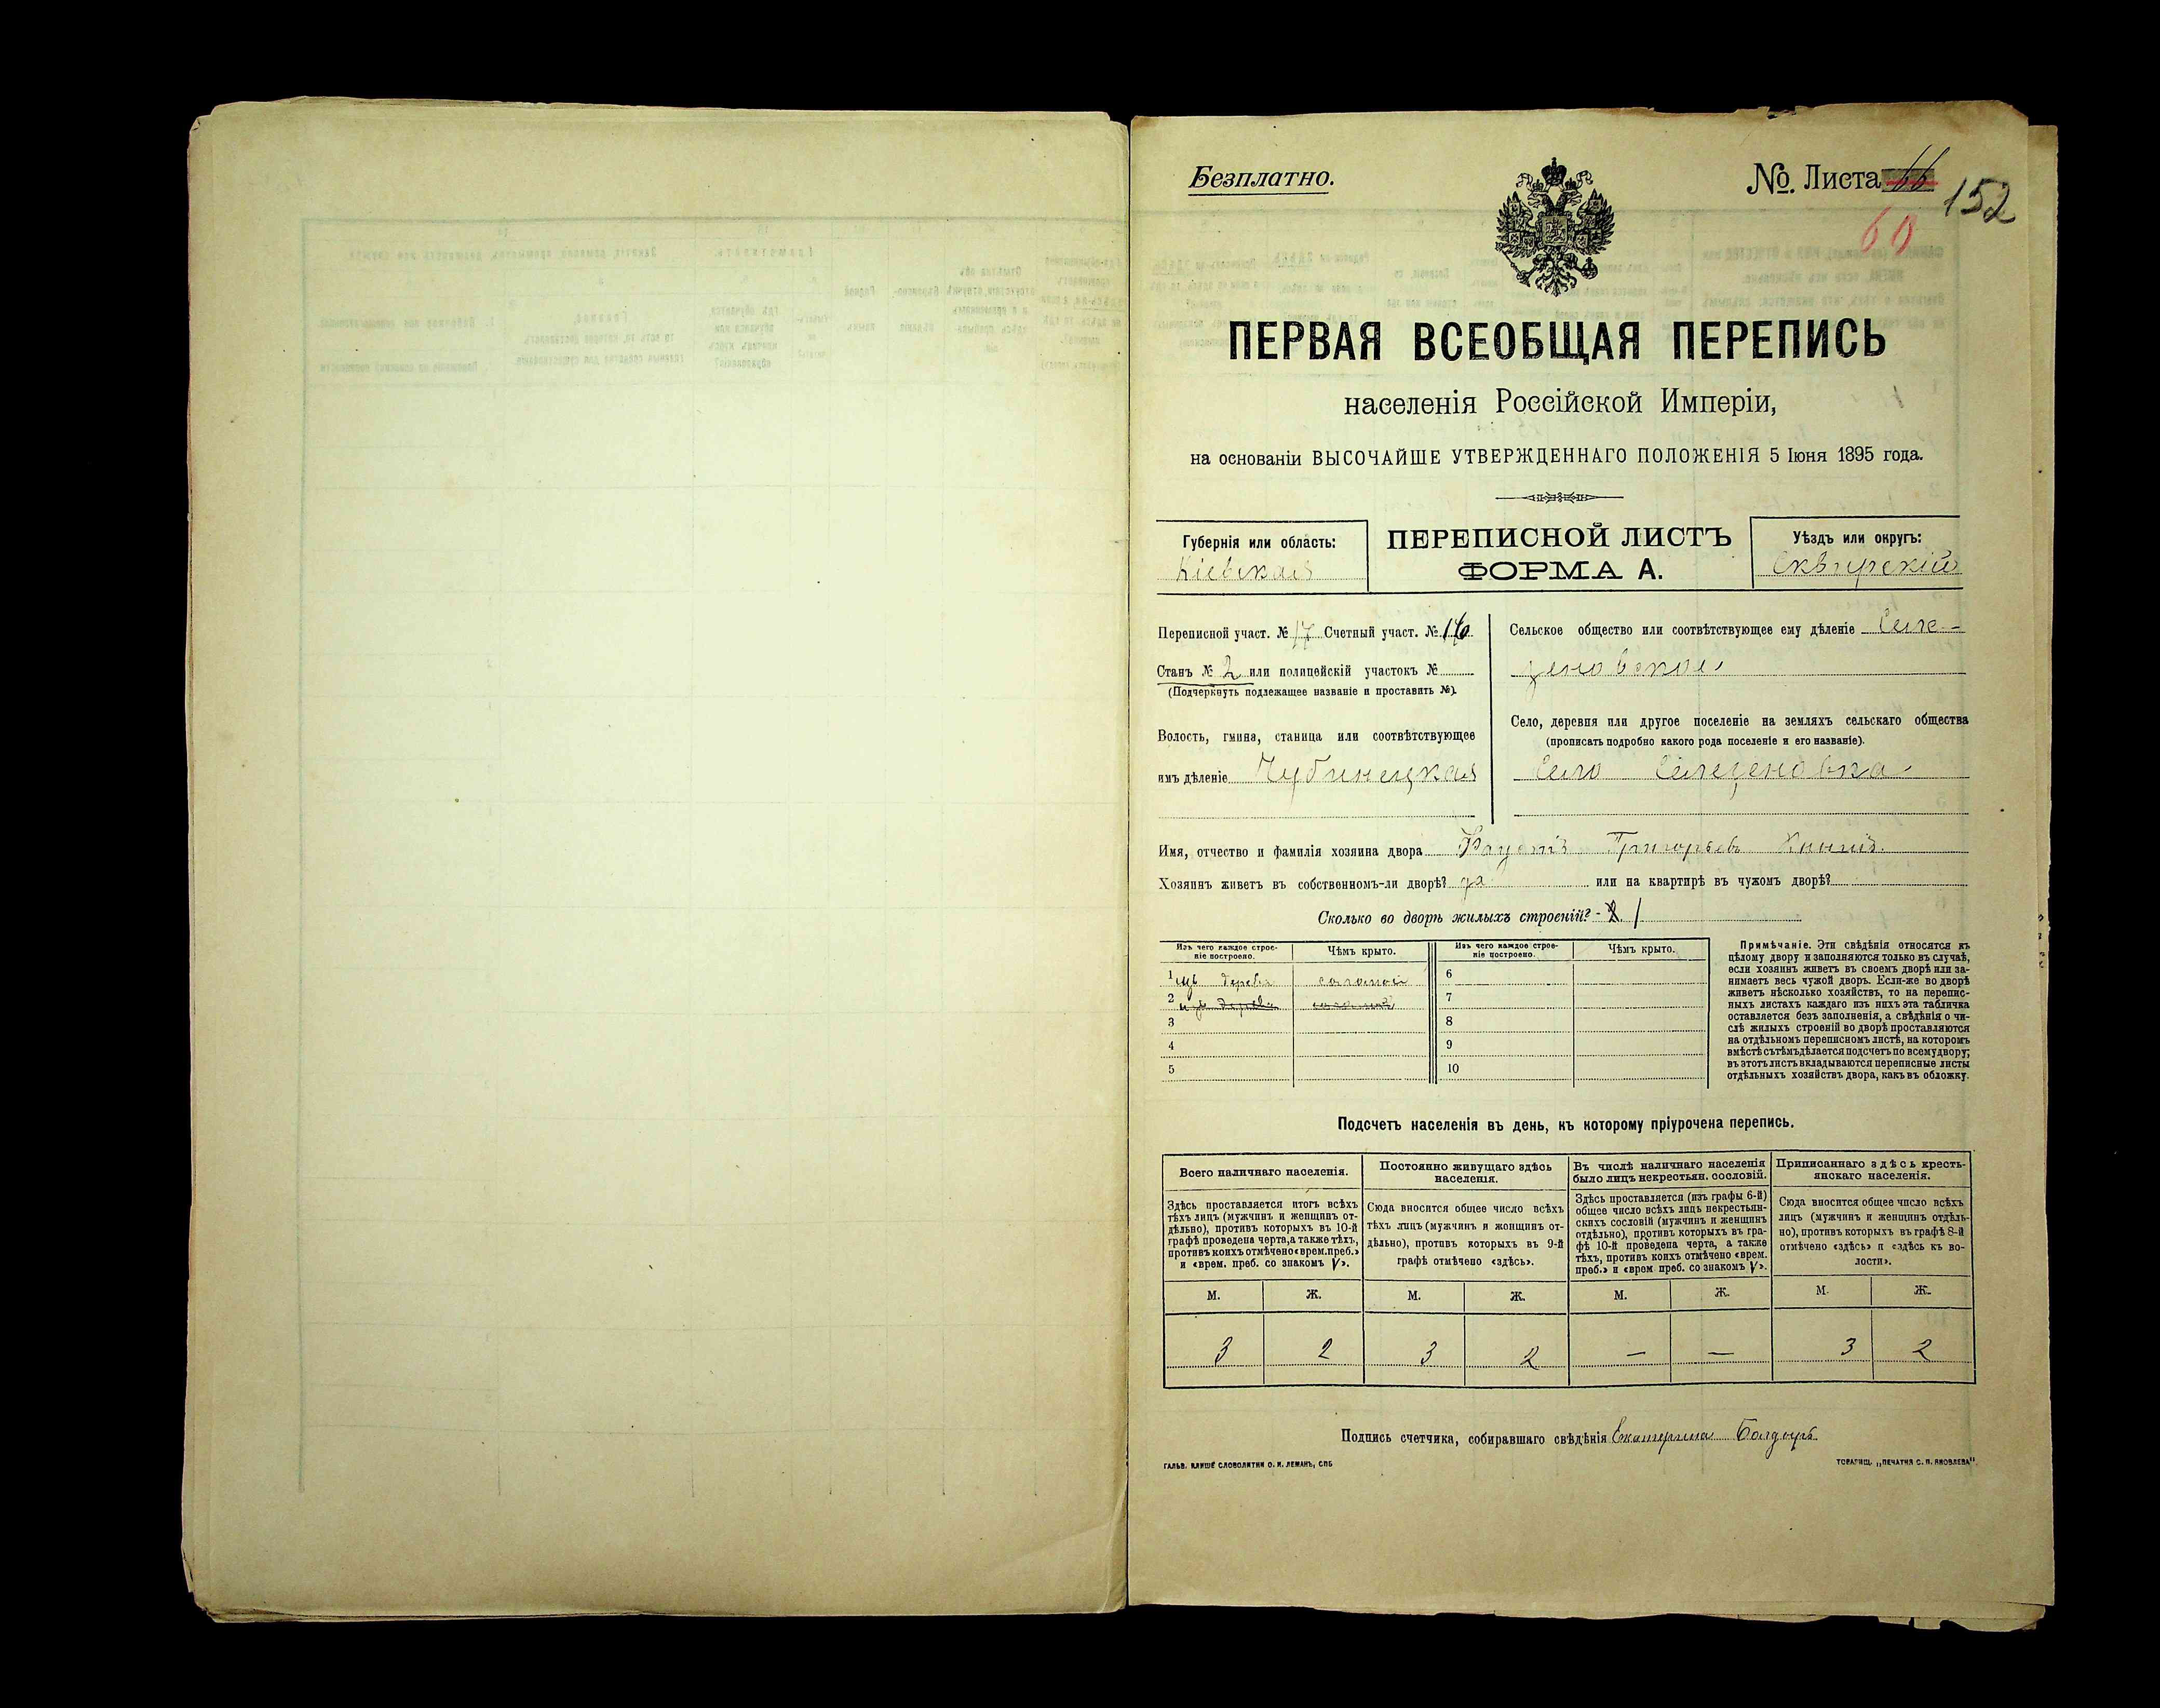 Безплатно.
№. Листа 66
152
60
ПЕРВАЯ ВСЕОБЩАЯ ПЕРЕПИСЬ
населенія Россійской Имперіи,
на основаніи ВЫСОЧАЙШЕ УТВЕРЖДЕННАГО ПОЛОЖЕНІЯ 5 Іюня 1895 года.
Губернія или область:
Кіевская
ПЕРЕПИСНОЙ ЛИСТЪ
ФОРМА А.
Уѣздъ или округъ:
Сквирскій
Переписной участ. № 17 Счетный участ. №
Станъ № 2 или полицейскій участокъ №
(Подчеркнуть подлежащее названіе и проставить №).
Волость, гмина, станица или соотвѣтствующее
имъ дѣленіе Чубинецкая
Сельское общество или соотвѣтствующее ему дѣленіе Селе-
зеновское
Село, деревня или другое поселеніе на земляхъ сельскаго общества
(прописать подробно какого рода поселеніе и его названіе).
Село Селезеновка
Имя, отчество и фамилія хозяина двора Григорьевъ
Хозяинъ живетъ въ собственномъ-ли дворѣ? да или на квартирѣ въ чужомъ дворѣ?
Сколько во дворѣ жилыхъ строеній? - 2. 1
Изъ чего каждое строе-
ніе построено.
Чѣмъ крыто.
Изъ чего каждое строе-
ніе построено.
Чѣмъ крыто.
1 изъ дерева соломой 6
2 изъ дерева соломой 7
3 8
4 9
5 10
Примѣчаніе. Эти свѣдѣнія относятся къ
цѣлому двору и заполняются только въ случаѣ,
если хозяинъ живетъ въ своемъ дворѣ или за-
нимаетъ весь чужой дворъ. Если-же во дворѣ
живетъ нѣсколько хозяйствъ, то на перепис-
ныхъ листахъ каждаго изъ нихъ эта табличка
оставляется безъ заполненія, а свѣдѣнія о чи-
слѣ жилыхъ строеній во дворѣ проставляются
на отдѣльномъ переписномъ листѣ, на которомъ
вмѣстѣ съ тѣмъ дѣлается подсчетъ по всему двору;
въ этотъ листъ вкладываются переписные листы
отдѣльныхъ хозяйствъ двора, какъ въ обложку.
Подсчетъ населенія въ день, къ которому пріурочена перепись.
Всего наличнаго населенія.
Здѣсь проставляется итогъ всѣхъ
тѣхъ лицъ (мужчинъ и женщинъ от-
дѣльно), противъ которыхъ въ 10-й
графѣ проведена черта, а также тѣхъ,
противъ коихъ отмѣчено «врем. преб.»
и «врем. преб. со знакомъ V».
Постоянно живущаго здѣсь
населенія.
Сюда вносится общее число всѣхъ
тѣхъ лицъ (мужчинъ и женщинъ от-
дѣльно), противъ которыхъ въ 9-й
графѣ отмѣчено «здѣсь».
Въ числѣ наличнаго населенія
было лицъ некрестьян. сословій.
Здѣсь проставляется (изъ графы 6-й)
общее число всѣхъ лицъ некрестьян-
скихъ сословій (мужчинъ и женщинъ
отдѣльно), противъ которыхъ въ гра-
фѣ 10-й проведена черта, а также
тѣхъ, противъ коихъ отмѣчено «врем.
преб.» и «врем преб. со знакомъ V».
Приписаннаго здѣсь кресть-
янскаго населенія.
Сюда вносится общее число всѣхъ
лицъ (мужчинъ и женщинъ отдѣль-
но), противъ которыхъ въ графѣ 8-й
отмѣчено «здѣсь» и «здѣсь къ во-
лости».
М. Ж. М. Ж. М. Ж. М. Ж.
3 2 3 2 — — 3 2
Подпись счетчика, собиравшаго свѣдѣнія Екатерина Болдырь
ГАЛЬВ. КЛИШЕ СЛОВОЛИТНИ О. И. ЛЕМАНЪ, СПБ
ТОВАРИЩ. „ПЕЧАТНЯ С. П. ЯКОВЛЕВА".